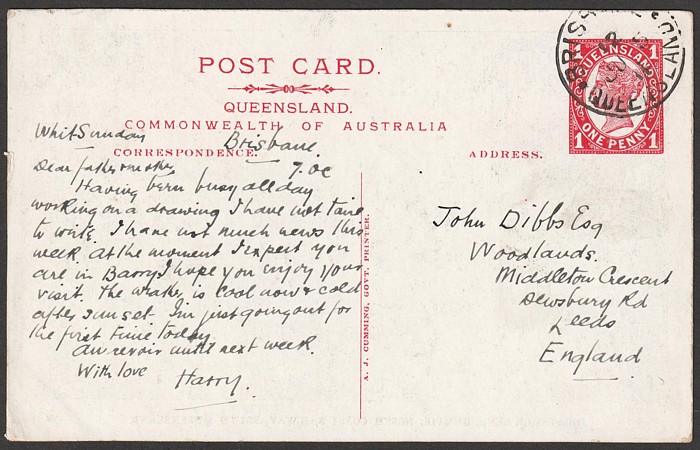 POST CARD.
QUEENSLAND.
COMMONWEALTH OF AUSTRALIA
CORRESPONDENCE.
ADDRESS.
QUEENSLAND
1 1
ONE PENNY
BRISBANE
QUEENSLAND
Whit Sunday
Brisbane
7.0c
Dear father & mother
Having been busy all day
working on a drawing I have not time
to write. I have not much news this
week. At the moment I expect you
are in Barry I hope you enjoy your
visit. The weather is cool now & cold
after sunset. I'm just going out for
the first time today
au revoir until next week.
With love
Harry.
A. J. CUMMING, GOVT. PRINTER.
John Dibbs Esq
Woodlands.
Middleton Crescent
Dewsbury Rd
Leeds
England